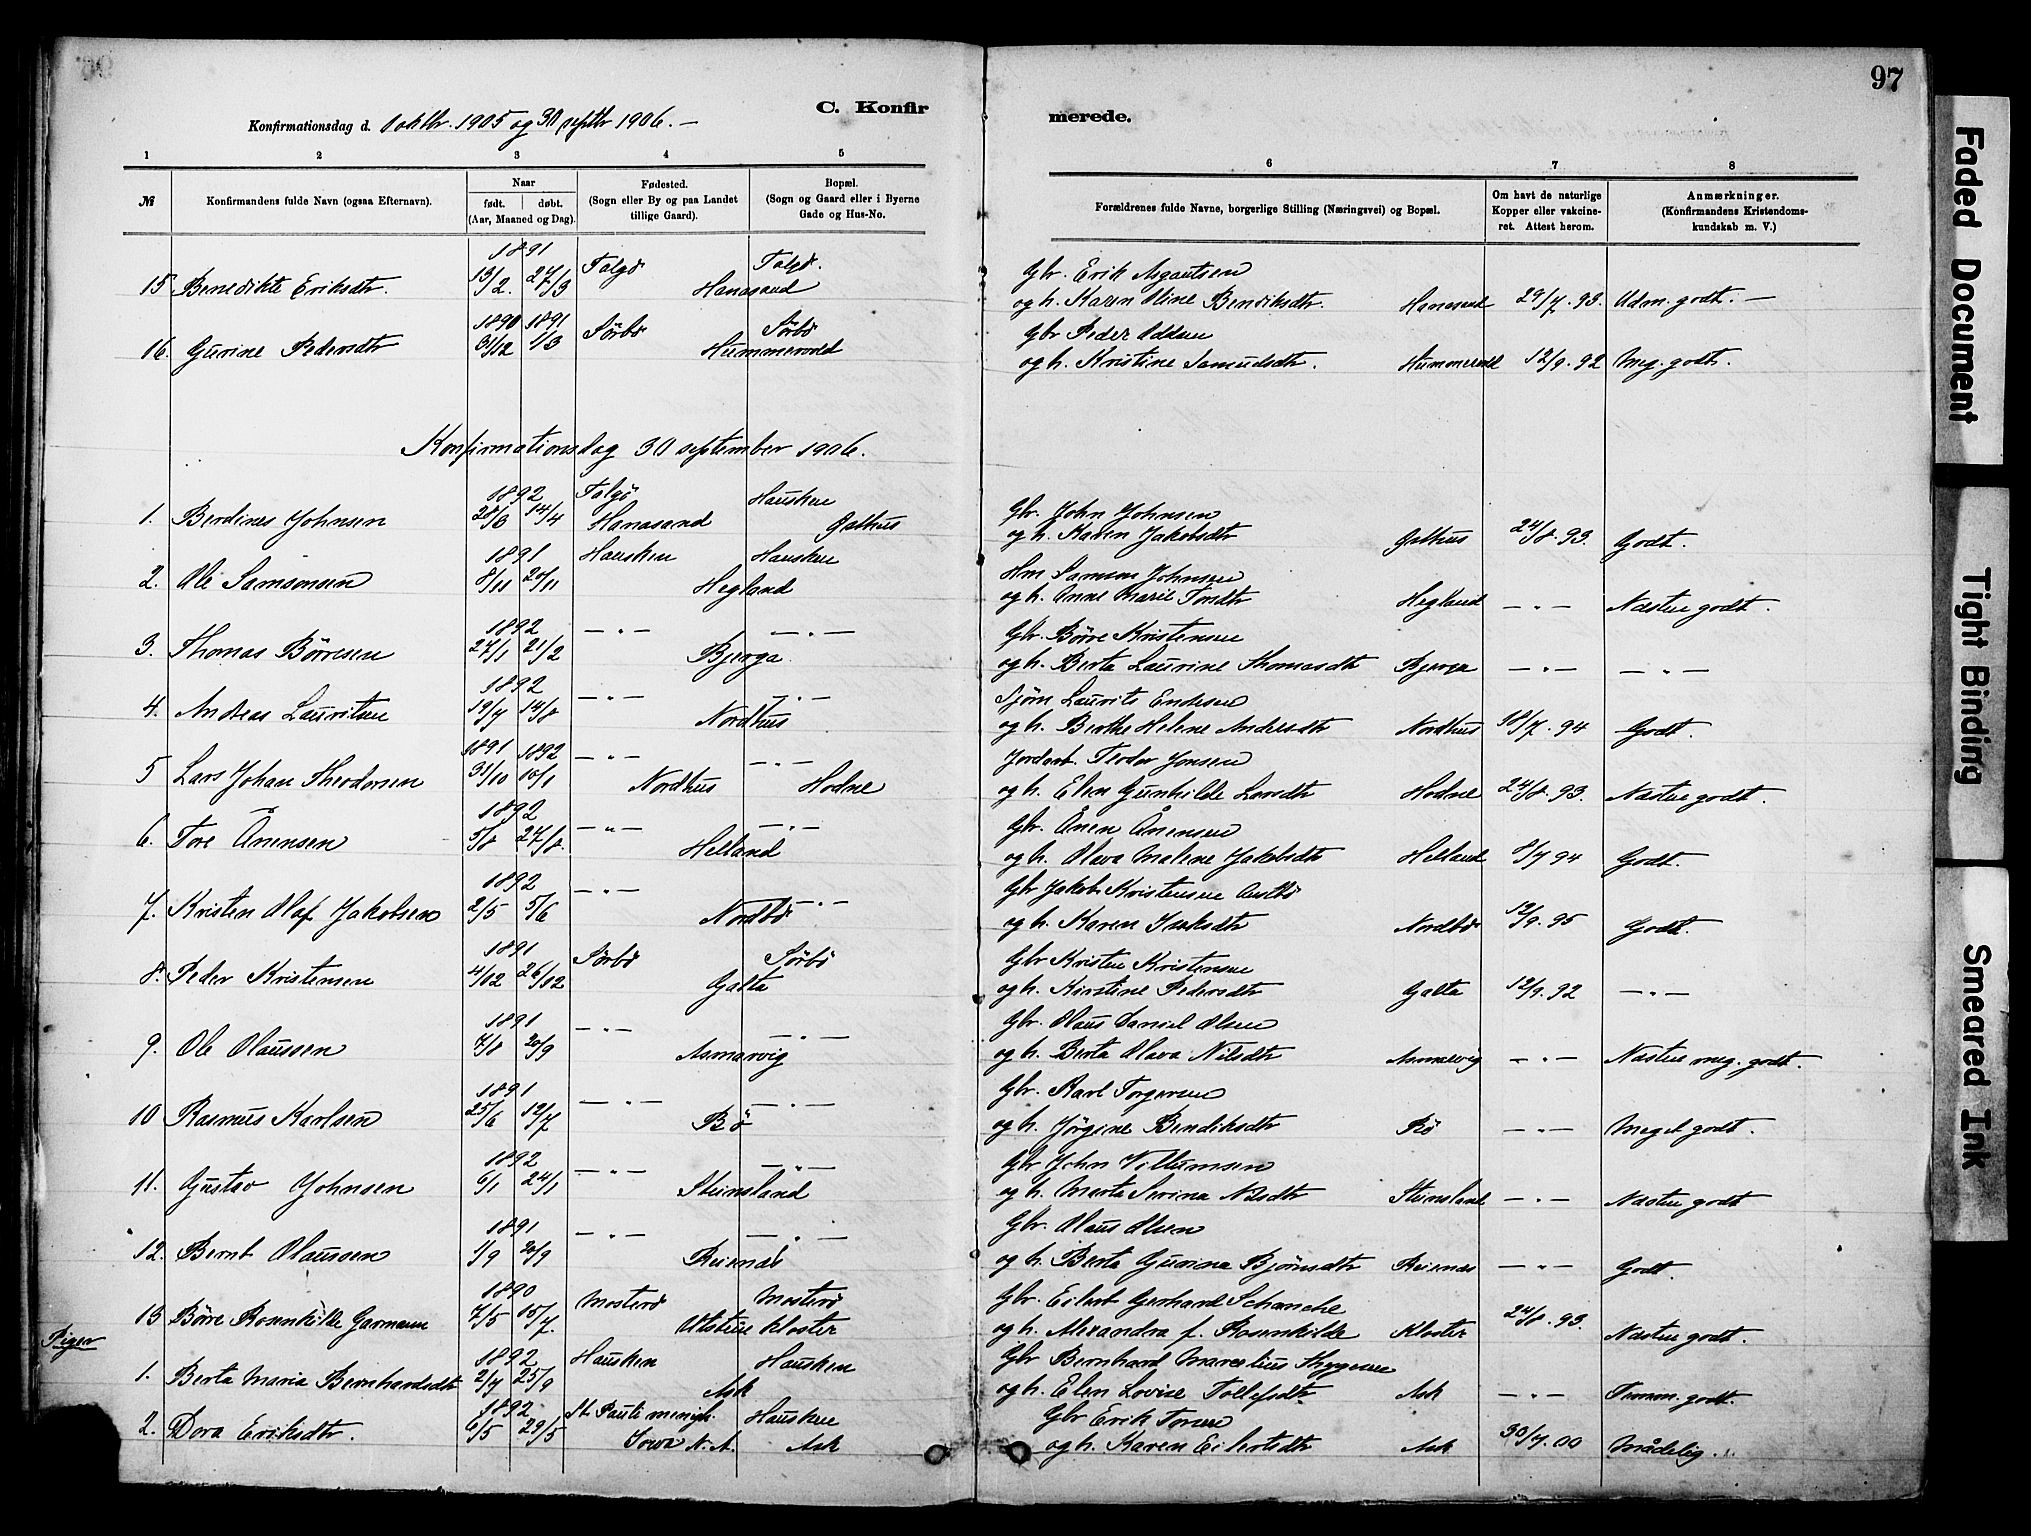 97
C. Konfirmerede.
Konfirmationsdag d. 1 oktbr. 1905 og 30 septbr 1906. —
1 2 3 4 5 6 7 8
№ Konfirmandens fulde Navn (ogsaa Efternavn). Naar født. døbt. (Aar, Maaned og Dag). Fødested. (Sogn eller By og paa Landet tillige Gaard). Bopæl. (Sogn og Gaard eller i Byerne Gade og Hus-No. Forældrenes fulde Navne, borgerlige Stilling (Næringsvei) og Bopæl. Om havt de naturlige Kopper eller vakcineret. Attest herom. Anmærkninger. (Konfirmandens Kristendomskundskab m. V.)
1891 Talgø Talgø. Gbr. Erik Asgautsen
15 Benedikte Eriksdtr. 13/2. 27/3 Hanasand og h. Karen Oline Bendiksdtr. Hanasand 29/7. 93. Udm. godt. —
1890 1891 Sørbø Sørbø Gbr Peder Oddsen
16. Gurine Pedersdtr 31/12 1/3 Hummervold og h. Kristine Samuelsdtr. Hummervold 12/9. 92 Meg. godt.
Konfirmationsdag 30 september 1906.
1892 Talgö Hausken Gbr. John Johnsen
1. Berdines Johnsen 28/3 14/4 Hanasand Galthus og h. Karen Jakobsdtr Galthus 24/8. 93. Godt.
1891 Hausken Hausken Hm Samson Johnsen
2. Ole Samsonsen 8/11 20/11 Hegland og h. Anne Marie Tondtr Hegland — " — Næsten godt.
1892 — " — — " — Gbr. Børre Kristensen
3. Thomas Børresen 27/1 21/2 Bjerga og h. Berta Laurine Thomasdtr Bjerga — " — — " —
1892 — " — — " — Sjöm Laurits Endesen
4. Andreas Lauritsen 19/7 14/8 Nordhus og h. Berthe Helene Andersdtr Nordhus 18/7. 94 Godt.
1891 1892 — " — — " — Jordarb. Teodor Jonsen
5 Lars Johan Theodorsen 31/10 10/1 Nordhus Hodne og h. Elen Gunhilde Larsdtr Hodne 24/8. 93. Næsten godt.
1892 — " — — " — Gbr. Ånen Ånensen
6. Tore Ånensen 5/8 27/8. Helland og h. Olava Malene Jakobsdtr Helland 8/7 94 Godt.
1892 — " — — " — Gbr Jakob Kristensen Austbø
7. Kristen Olaf Jakobsen 2/5 5/6 Nordbø og h. Karen Isaksdtr Nordbø 12/9. 95 Godt.
1891 Sørbø Sørbø Gbr Kristen Kristensen
8. Peder Kristensen 4/12 26/12 Galta og h. Kirstine Pedersdtr Galta 12/9. 92 — " —
1891 — " — — " — Gbr. Olaus Daniel Olsen
9. Ole Olaussen 7/8 20/9 Asmarvig og h. Berta Olava Nilsdtr Asmarvig — " — Næsten meg. godt.
1891 — " — — " — Gbr. Karl Torgersen
10 Rasmus Karlsen 25/6 12/7 Bö og h. Jørgine Bendiksdtr Bö — " — Meget godt.
1892 — " — — " — Gbr John Villumsen
11. Gustav Johnsen 6/1 24/1 Steinsland og h. Marta Serina Nilsdtr Steinsland — " — Næsten godt
1891 — " — — " — Gbr. Olaus Olsen
12. Bernt Olaussen 1/9 20/9 Reianes og h. Berta Gurina Bjørnsdtr Reianes — " — Godt.
1890 Mosterø Mosterø Gbr. Eilert Gerhard Schanche
13 Börre Rosenkilde Garmann 7/5 15/7. Utstein Kloster og h. Alexandra f. Rosenkilde Kloster 24/8. 93. Næsten godt.
Piger
1892 Hausken Hausken Gbr Bernhard Marselius Thygesen
1. Berta Maria Bernhardsdtr 2/7 25/9 Ask og h. Elen Lovise Tollefsdtr Ask — " — Temm. godt.
1892 St. Pauli menigh. Hausken Gbr Erik Torsen
2. Dora Eriksdtr. 6/5 29/5 Iowa N. A. Ask og h. Karen Eilertsdtr Ask 30/7. 00 Mådelig.
Faded Document
Tight Binding
Smeared Ink